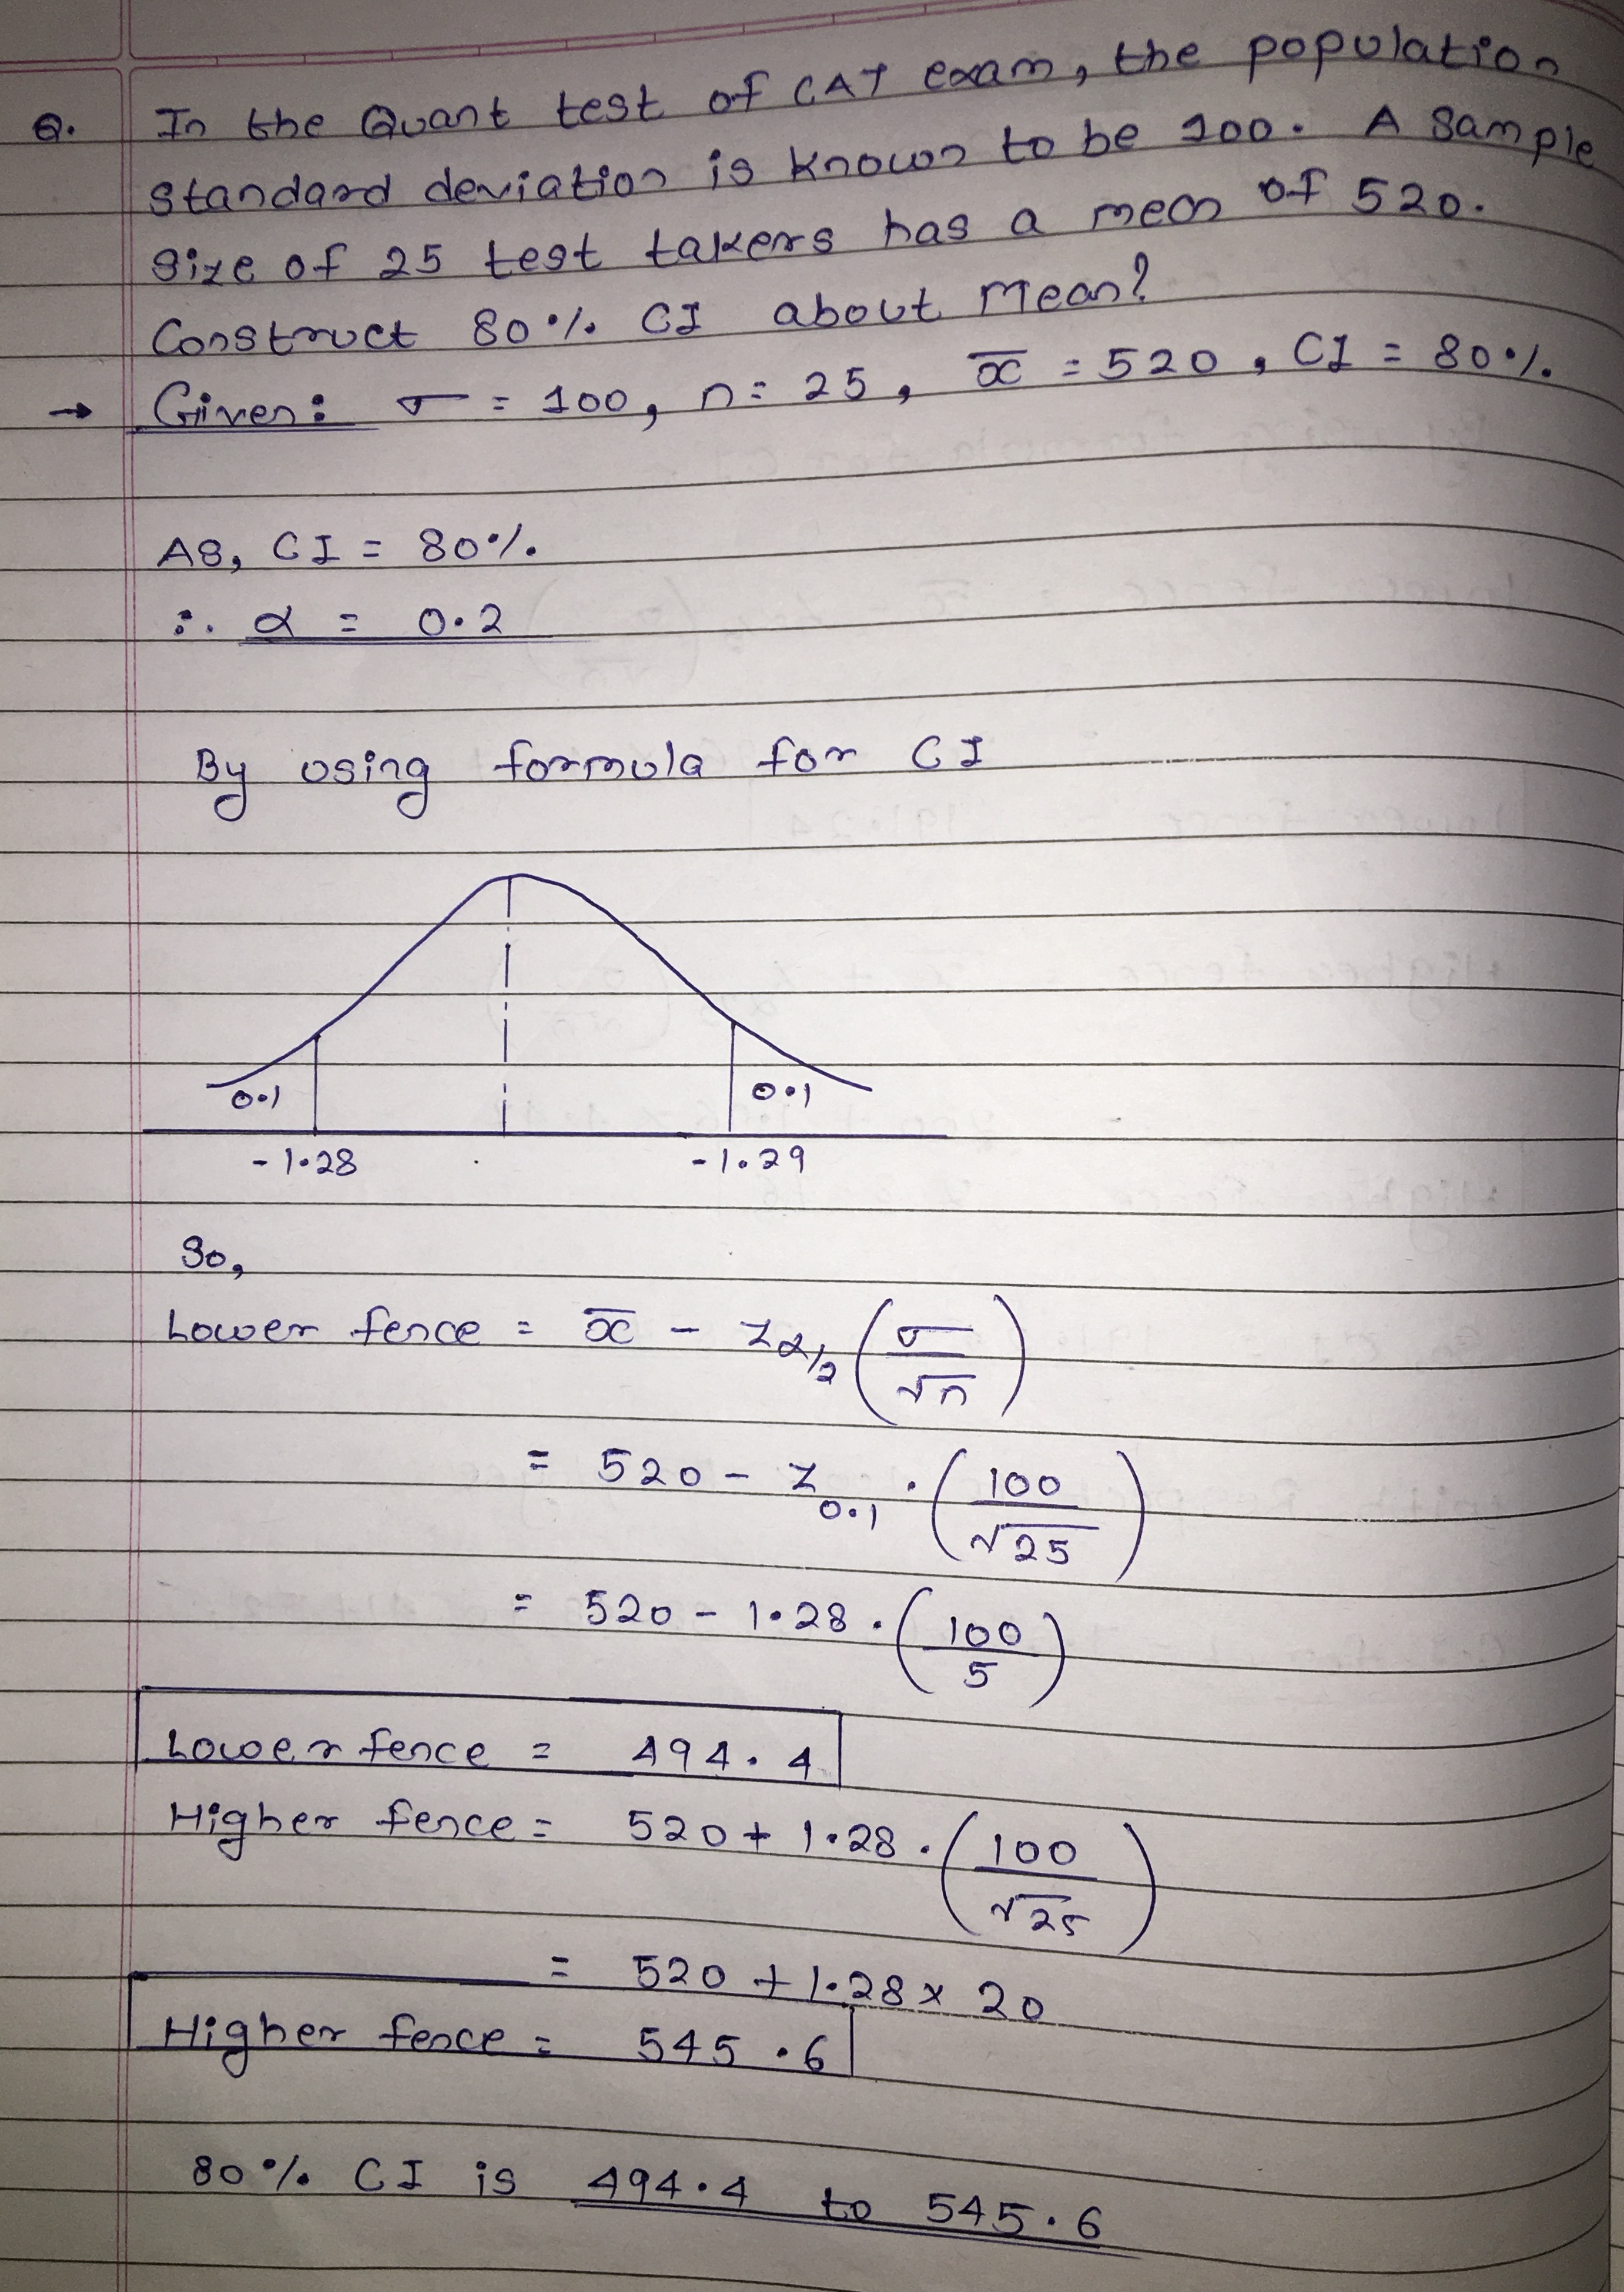 Q. In the Quant test of CAT exam, the population
standard deviation is known to be 100. A Sample
size of 25 test takers has a mean of 520.
Construct 80% CI about Mean?
→ Given: σ = 100, n = 25, x̄ = 520, CI = 80%.
As, CI = 80%.
∴ α = 0.2
By using formula for CI
0.1 0.1
-1.28 -1.29
So,
Lower fence = x̄ - Zα/2 (σ/√n)
= 520 - Z0.1 · (100/√25)
= 520 - 1.28 · (100/5)
Lower fence = 494.4
Higher fence = 520 + 1.28 · (100/√25)
= 520 + 1.28 x 20
Higher fence = 545.6
80% CI is 494.4 to 545.6